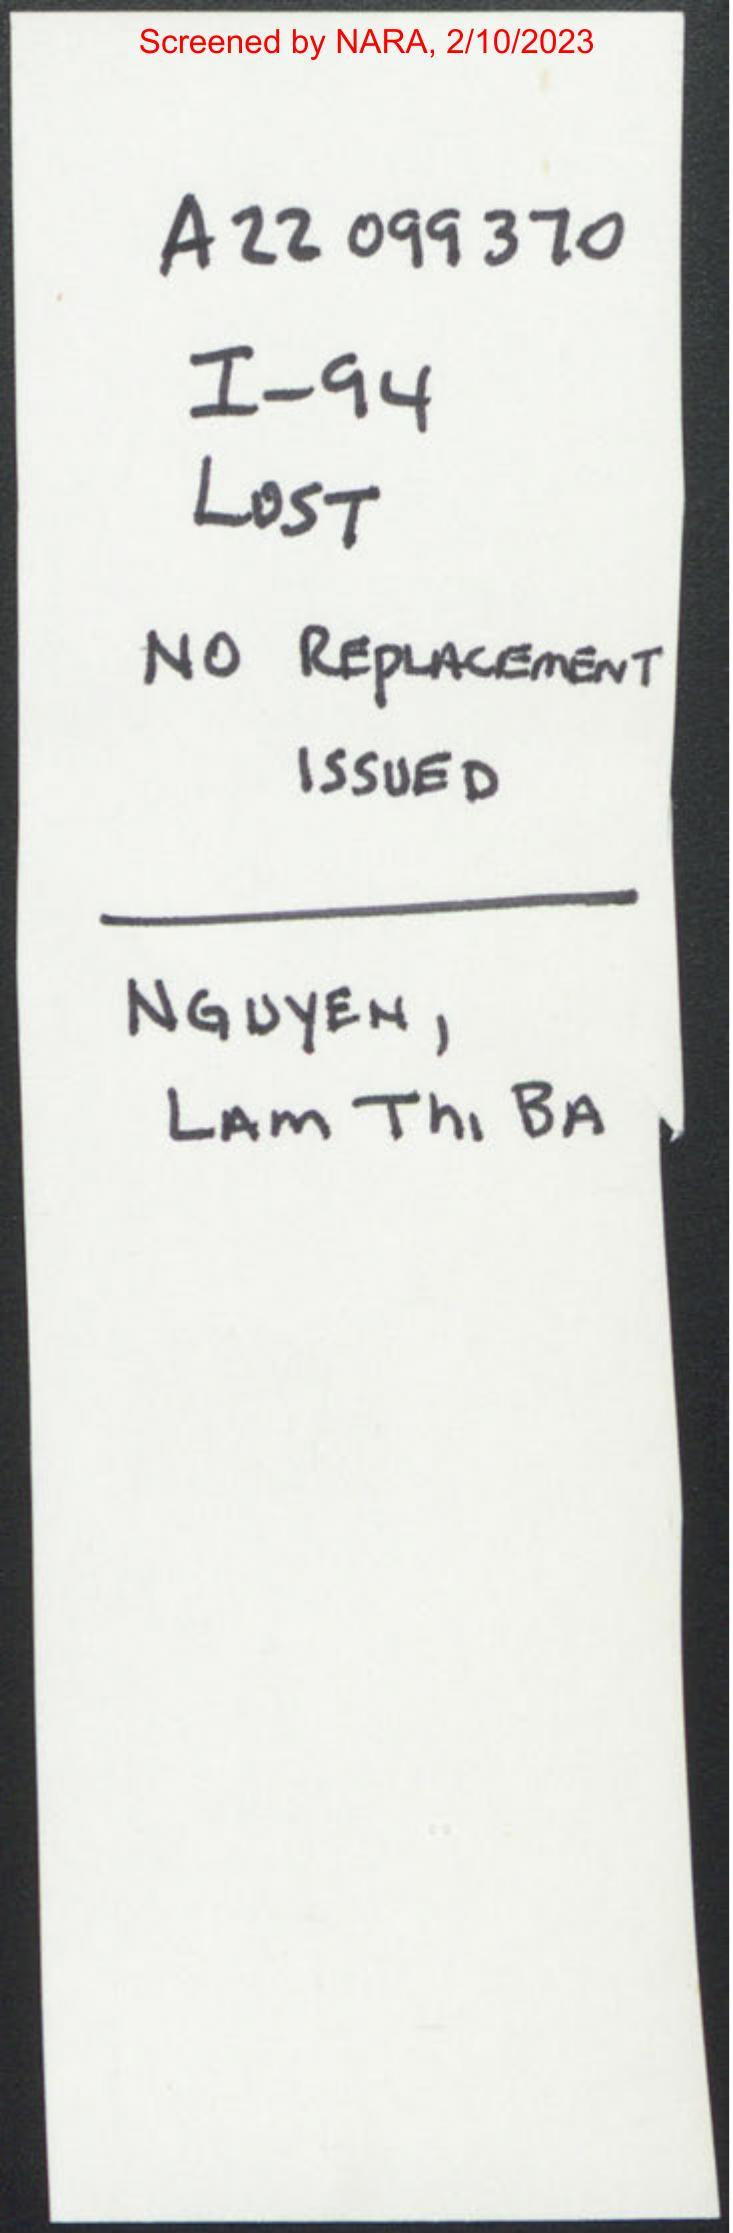 Screened by NARA, 2/10/2023
A22 099370
I-94
LOST
NO REPLACEMENT
ISSUED
NGUYEN,
LAm Thi BA